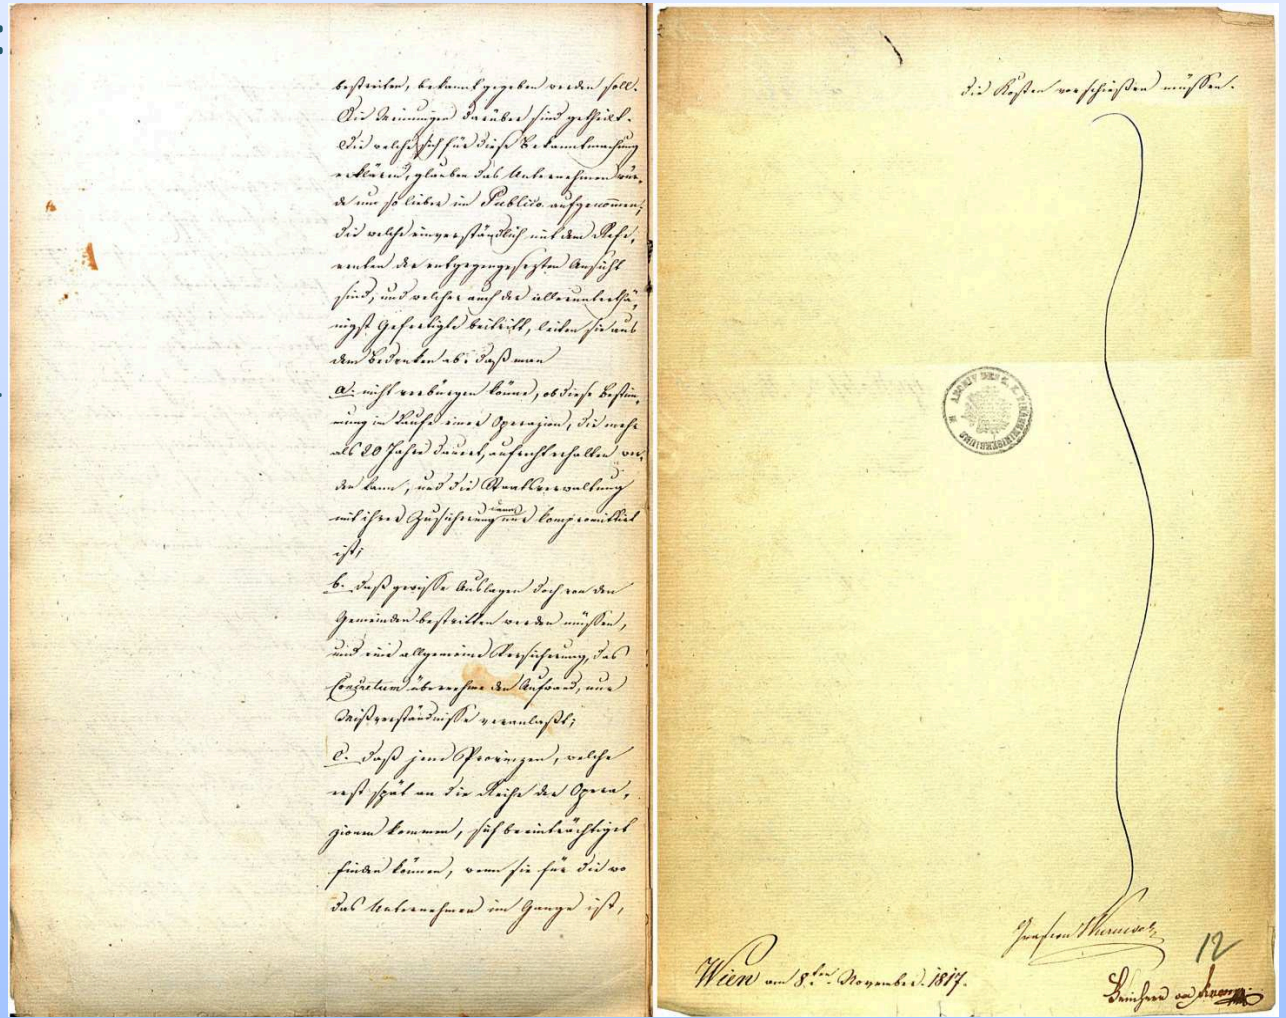 bestreiten, bekannt gegeben werden soll.
Die Meinungen darüber sind getheilt.
Die welche sich für diese Bekanntmachung
erklären, glauben das Unternehmen wür-
de um so lieber im Publico aufgenommen;
die welche einverständlich mit dem Refe-
renten der entgegengesezten Ansicht
sind, und welcher auch der allerunterthä-
nigst Gefertigte beitritt, leiten sie aus
dem Bedenken ab: daß man
a. nicht verbürgen könne, ob diese Bestim-
mung im Laufe einer Operazion, die mehr
als 20 Jahre dauert, aufrecht erhalten wer-
den kann, und die Staatsverwaltung
mit ihrer Zusicherung dann nur kompromittirt
ist;
b. daß gewisse Auslagen doch von den
Gemeinden bestritten werden müssen,
und eine allgemeine Versicherung, das
übernehme den Aufwand, nur
Mißverständnisse veranlaßt;
c. daß jene Provinzen, welche
erst spät an die Reihe der Opera-
zionen kommen, sich beeinträchtiget
finden können, wenn sie für die wo
das Unternehmen im Gange ist,
die Kosten vorschießen müssen.
ARCHIV DES K. K. FINANZMINISTERIUMS
Wien am 8ten November 1817.
12